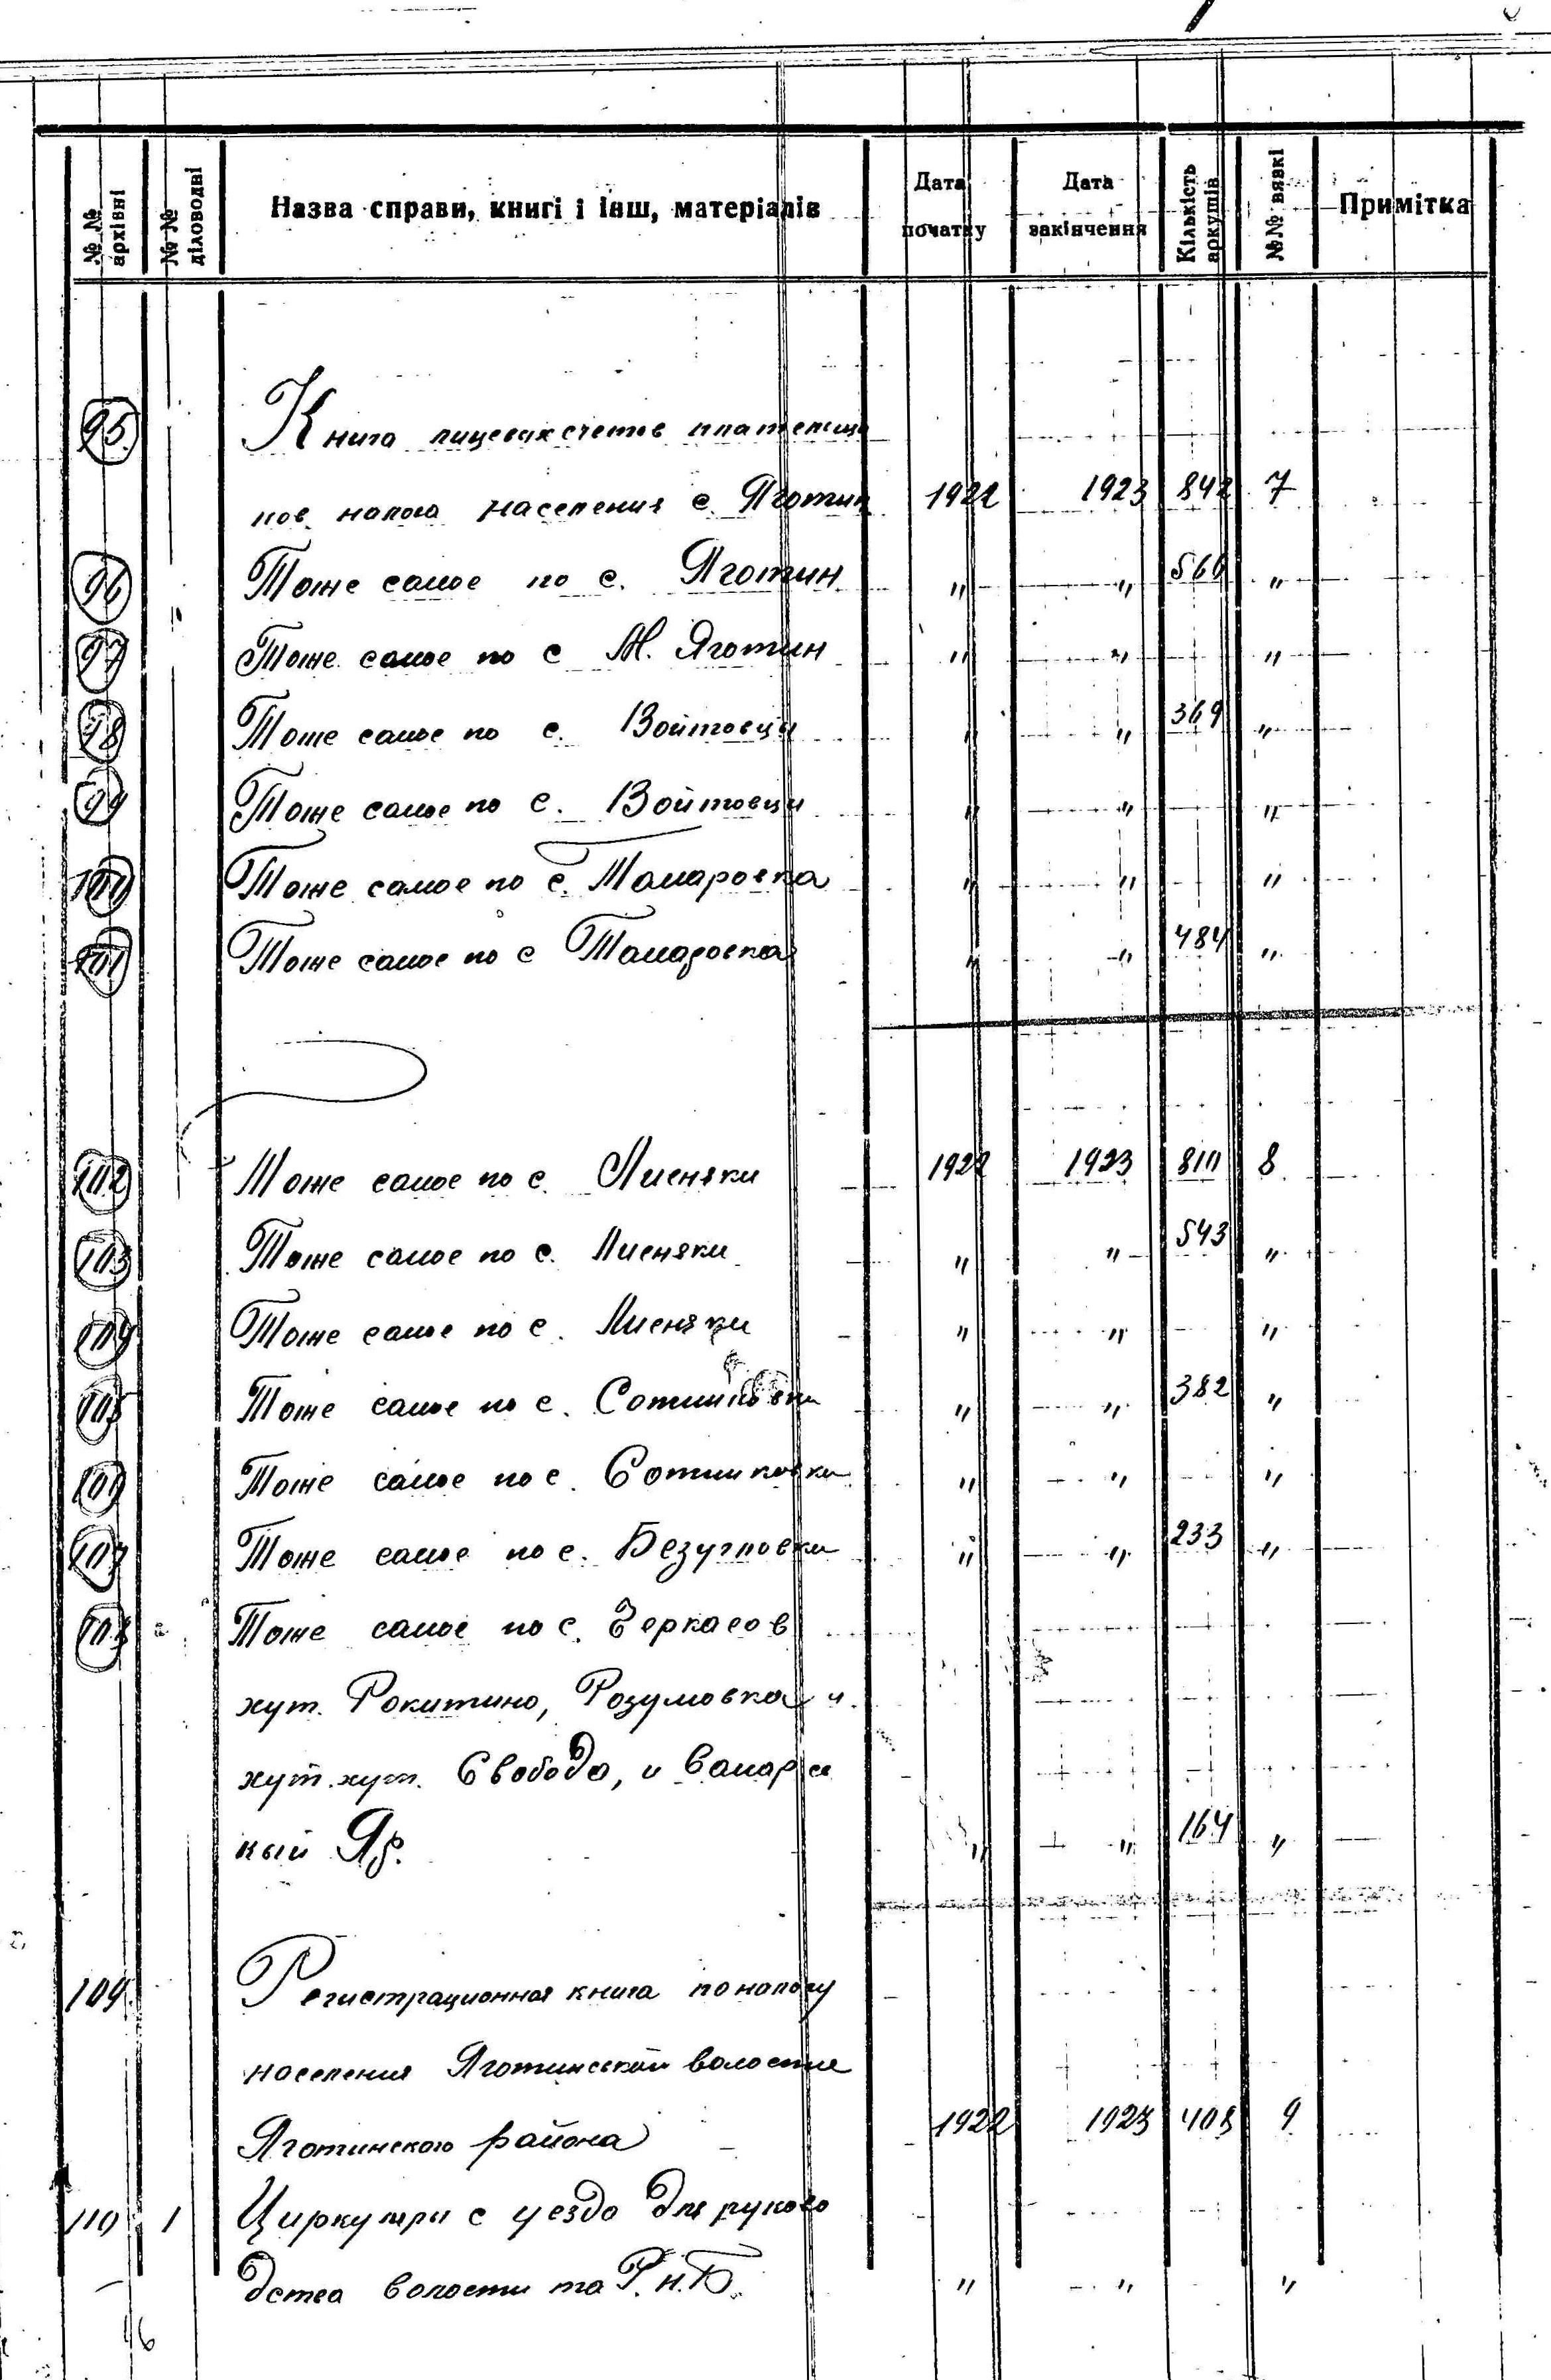 № № архівні № № діловодві Назва справи, книгі і інш, матеріалів Дата початку Дата закінчення Кількість аркушів №№ вявкі Примітка
95. Книга лицевых счетов плательщи
ков налога населения с. Яготин 1922 1923 842 7
96 Тоже самое по с. Яготин " " 566 "
97 Тоже самое по с М. Яготин " " "
98 Тоже самое по с. Войтовцы " " 369 "
99 Тоже самое по с. Войтовци " " "
100 Тоже самое по с. Тамаровка " " "
101 Тоже самое по с Тамаровка " " 484 "
102 Тоже самое по с. Лисняки 1922 1923 810 8
103 Тоже самое по с. Лисняки " " 543 "
104 Тоже самое по с. Лисняки " " "
105 Тоже самое по с. Сотниковки " " 382 "
106 Тоже самое по с. Сотниковки " " "
107 Тоже самое по с. Безугловки " " 233 "
108 Тоже самое по с. Черкасов
хут. Рокитино, Розумовка и
хут. хут. Свобода, и Самарс
кий Яр. " " 164 "
109. Регистрационная книга по налогу
населения Яготинской волости
Яготинского района 1922 1923 408 9
110 1 Циркуляры с уезда для руково
дства волости та Р.Н.Б. " " "
46